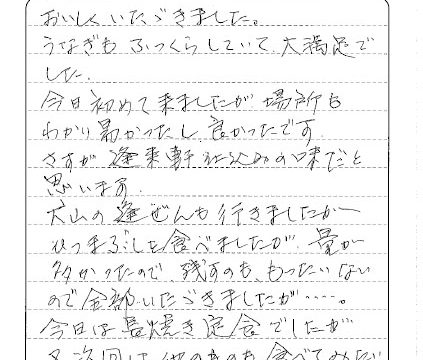 おいしくいただきました。
うなぎもふっくらしていて、大満足で
した。
今日初めて来ましたが場所も
わかり易かったし、良かったです。
さすが 蓬莱軒 仕込みの味だと
思います。
犬山の 蓬ぜんも行きましたが
ひつまぶしを食べましたが、量が
多かったので 残すのも、もったいない
ので全部いただきましたが……。
今日は長焼き定食でしたが
又次回は他のものも食べてみたい